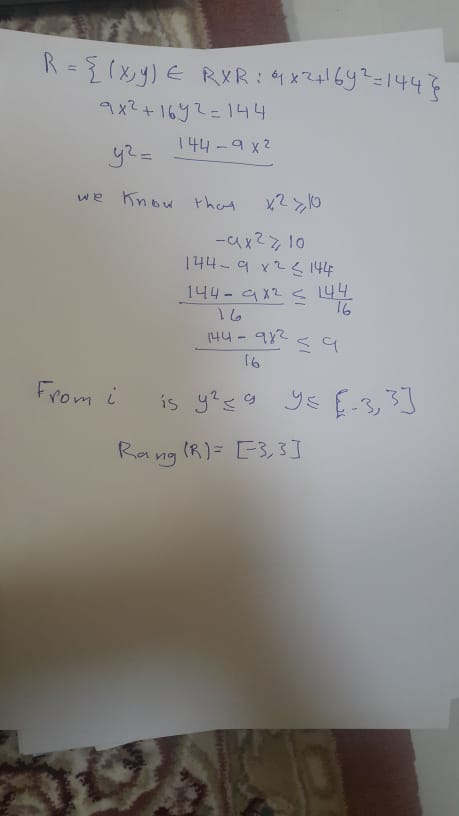 R = { (x,y) ∈ R×R : 9x²+16y²=144 }
9x²+16y²=144
y² = 144-9x²
we know that x² ⩾10
-9x² ⩾ 10
144-9x² ≤ 144
144-9x²/16 ≤ 144/16
144-9x²/16 ≤ 9
From i is y² ≤ 9 y ≤ [-3,3]
Rang(R)= [-3,3]